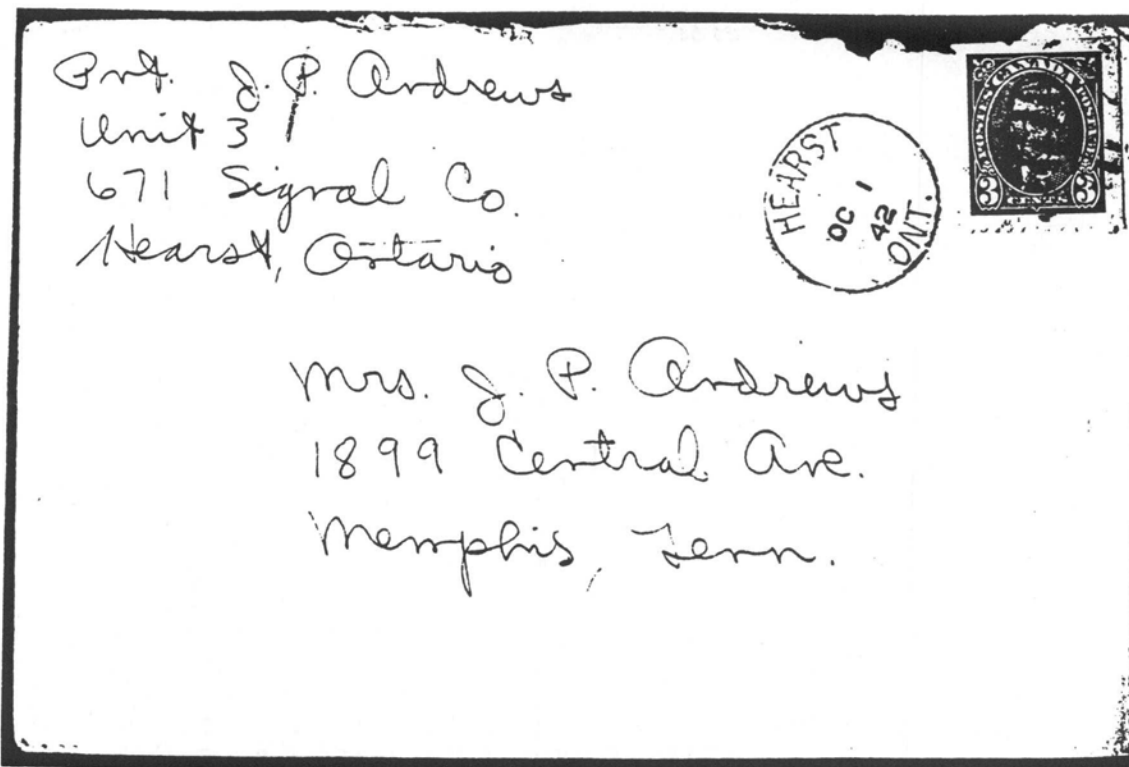 Pvt. J. P. Andrews
Unit 3
671 Signal Co.
Hearst, Ontario
HEARST
OC 1
42
ONT.
POSTES CANADA POSTAGE
3 CENTS 3
Mrs. J. P. Andrews
1899 Central Ave.
Memphis, Tenn.